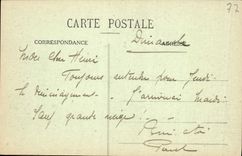 77
CARTE POSTALE
CORRESPONDANCE
Dimanche
Mon cher Henri
Toujours entendu pour Jeudi
le déménagement. J'arriverai Mardi
Sauf grande neige.
Paul